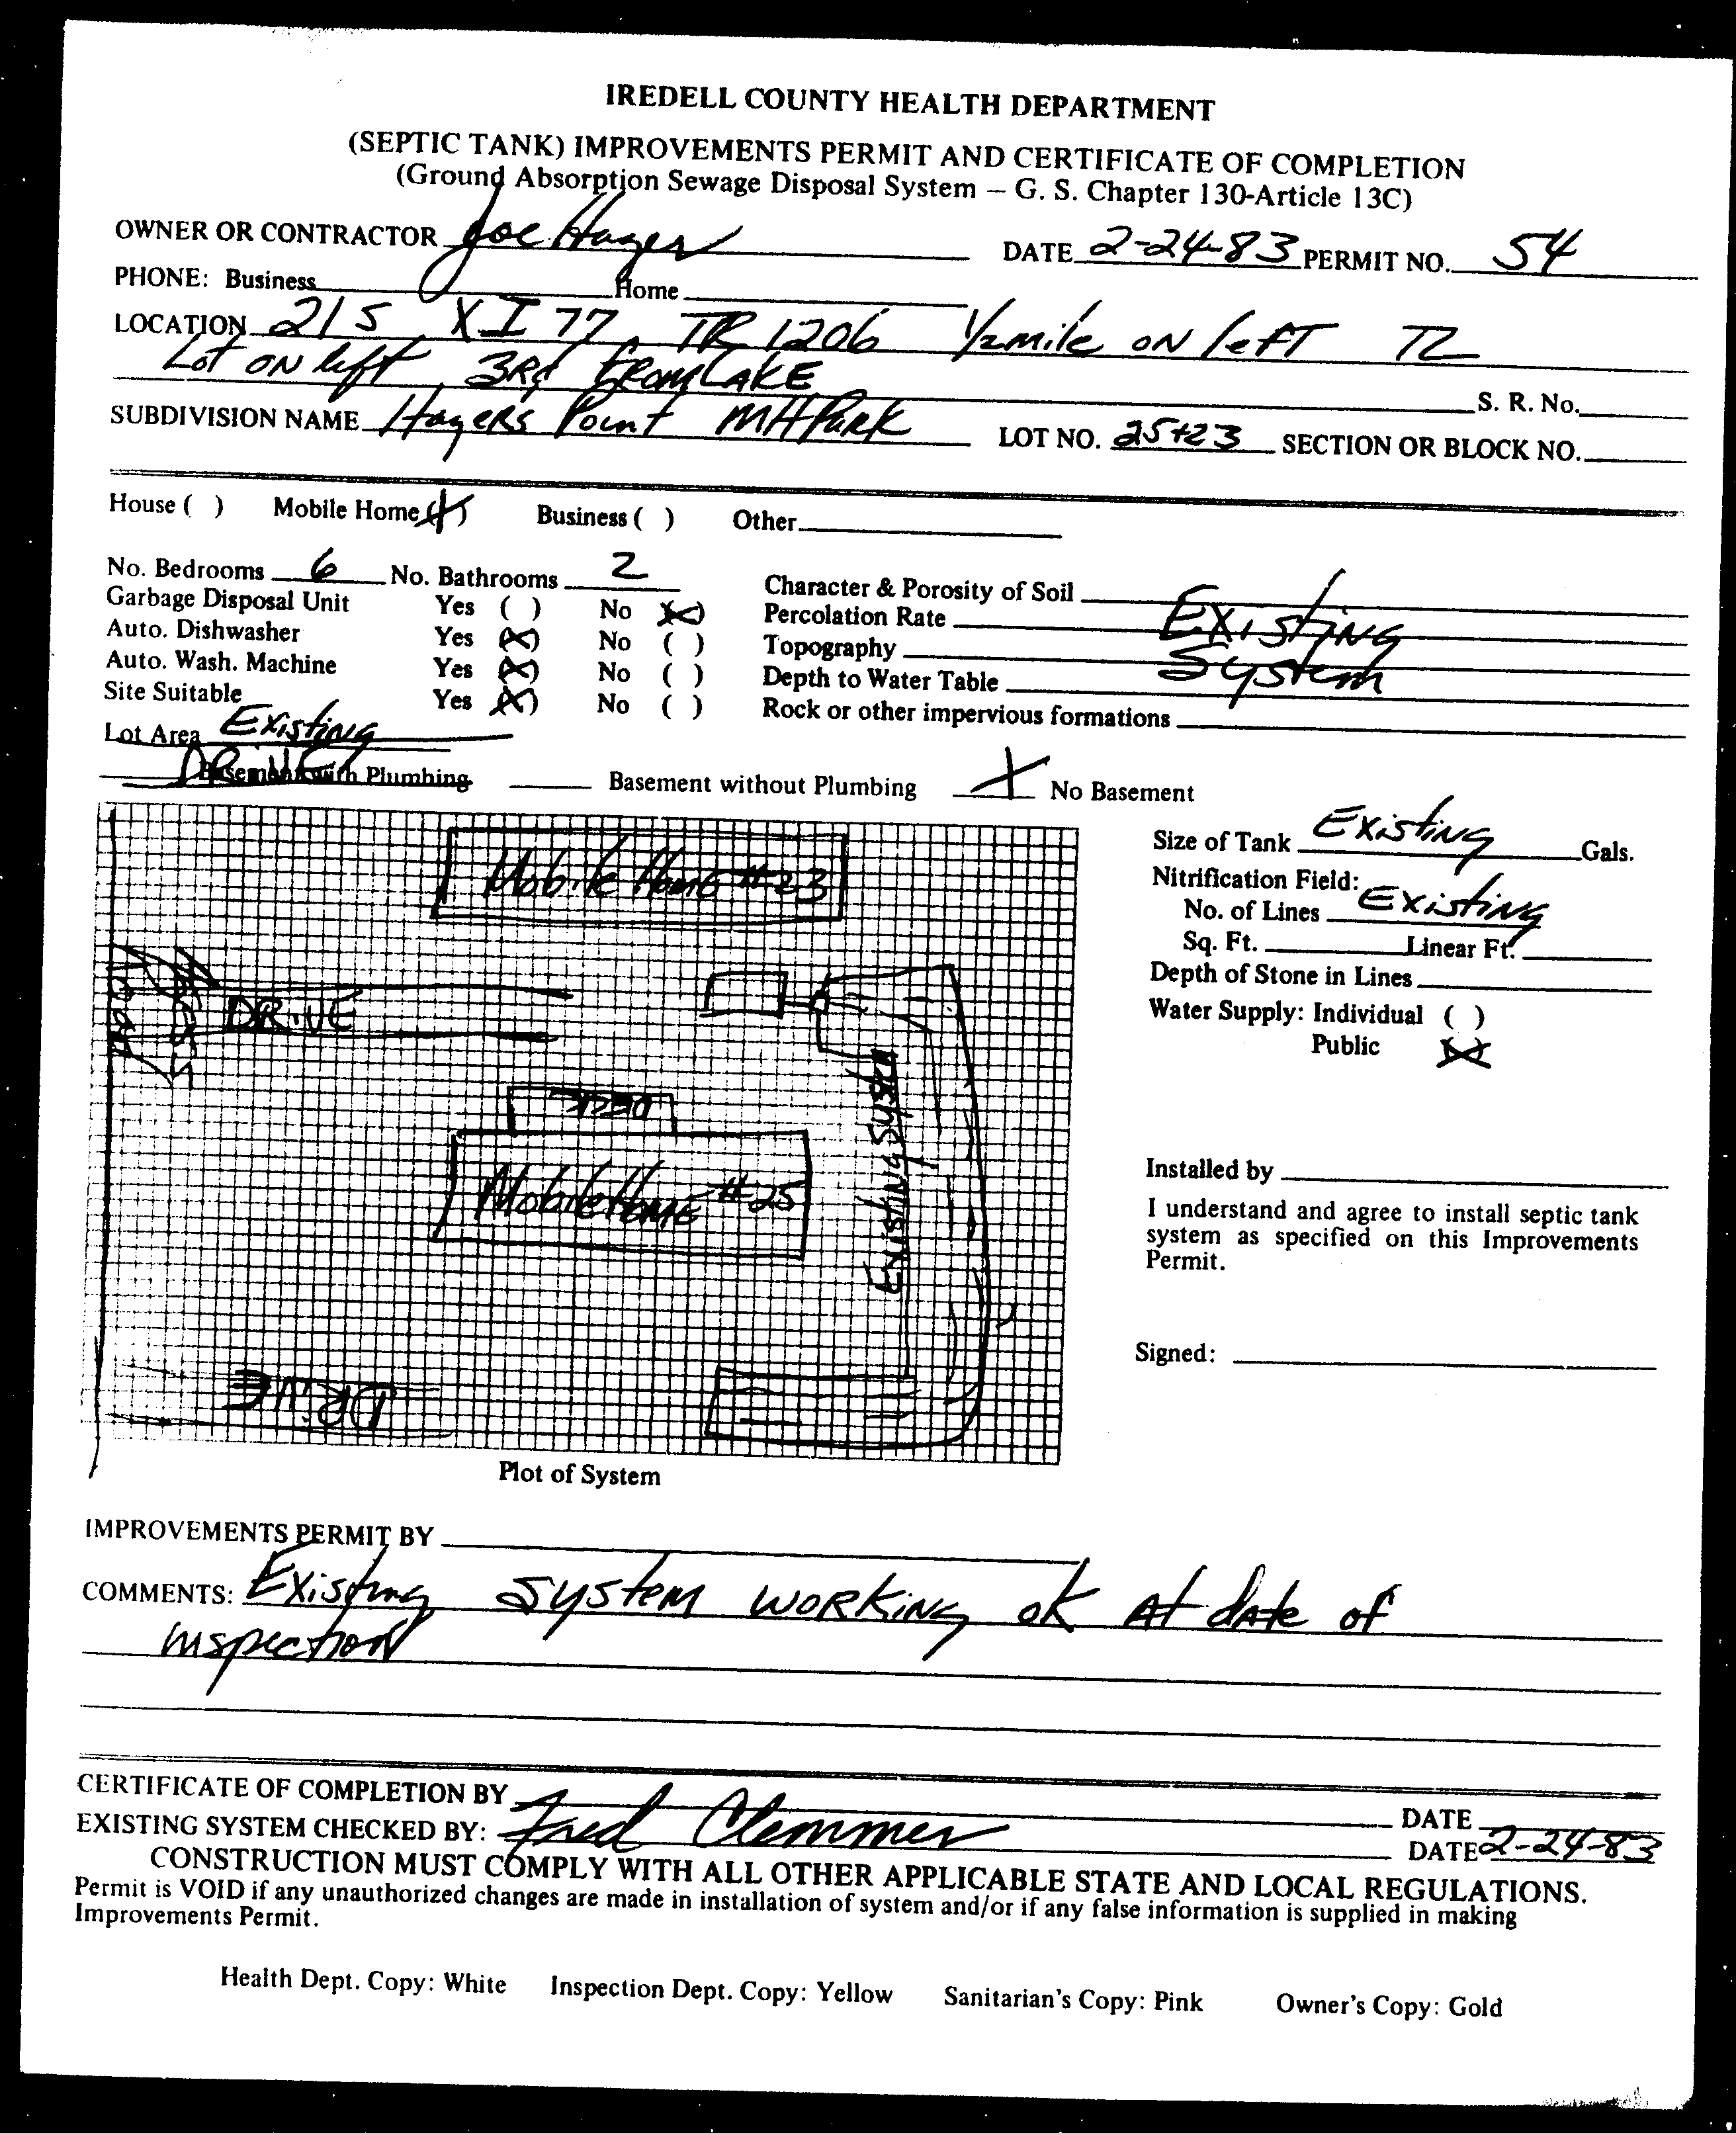 IREDELL COUNTY HEALTH DEPARTMENT
(SEPTIC TANK) IMPROVEMENTS PERMIT AND CERTIFICATE OF COMPLETION
(Ground Absorption Sewage Disposal System – G. S. Chapter 130-Article 13C)
OWNER OR CONTRACTOR Joe Hager DATE 2-24-83 PERMIT NO. 54
PHONE: Business Home
LOCATION 21S X I 77 TR 1206 1/2 mile on left TL
Lot on left 3Rd FROM LAKE S. R. No.
SUBDIVISION NAME Hagers Point MH Park LOT NO. 25+23 SECTION OR BLOCK NO.
House ( ) Mobile Home (X) Business ( ) Other
No. Bedrooms 6 No. Bathrooms 2 Character & Porosity of Soil
Garbage Disposal Unit Yes ( ) No (X) Percolation Rate Existing
Auto. Dishwasher Yes (X) No ( ) Topography System
Auto. Wash. Machine Yes (X) No ( ) Depth to Water Table
Site Suitable Yes (X) No ( ) Rock or other impervious formations
Lot Area Existing
Basement with Plumbing Basement without Plumbing X No Basement
DRIVE
Mobile Home #23
Size of Tank Existing Gals.
Nitrification Field:
No. of Lines Existing
Sq. Ft. Linear Ft.
Depth of Stone in Lines
Water Supply: Individual ( )
Public (X)
DRIVE
DECK
Mobile Home #25
Existing System
DRIVE
Installed by
I understand and agree to install septic tank
system as specified on this Improvements
Permit.
Signed:
Plot of System
IMPROVEMENTS PERMIT BY
COMMENTS: Existing System working ok at date of
inspection
CERTIFICATE OF COMPLETION BY DATE
EXISTING SYSTEM CHECKED BY: Fred Clemmer DATE 2-24-83
CONSTRUCTION MUST COMPLY WITH ALL OTHER APPLICABLE STATE AND LOCAL REGULATIONS.
Permit is VOID if any unauthorized changes are made in installation of system and/or if any false information is supplied in making
Improvements Permit.
Health Dept. Copy: White Inspection Dept. Copy: Yellow Sanitarian's Copy: Pink Owner's Copy: Gold